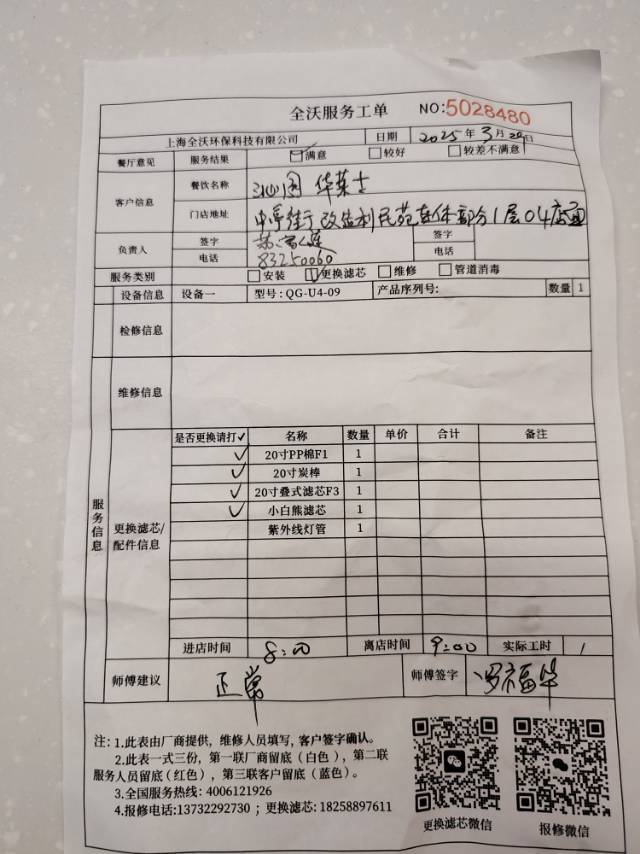 全沃服务工单 NO:5028480
上海全沃环保科技有限公司 日期 2025年3月29日
餐厅意见 服务结果 ☑满意 □较好 □较差不满意
客户信息 餐饮名称 沁园 华莱士
门店地址 中亭街 改造利民苑连体部分1层04店面
负责人 签字 签字
电话 83250060 电话
服务类别 □安装 ☑更换滤芯 □维修 □管道消毒
设备信息 设备一 型号:QG-U4-09 产品序列号: 数量 1
检修信息
维修信息
服务信息
更换滤芯/配件信息
是否更换请打✓ 名称 数量 单价 合计 备注
✓ 20寸PP棉F1 1
✓ 20寸炭棒 1
✓ 20寸叠式滤芯F3 1
✓ 小白熊滤芯 1
紫外线灯管 1
进店时间 8:00 离店时间 9:00 实际工时 1
师傅建议 正常 师傅签字 罗福华
注: 1.此表由厂商提供, 维修人员填写, 客户签字确认。
2.此表一式三份, 第一联厂商留底(白色), 第二联
服务人员留底(红色), 第三联客户留底(蓝色)。
3.全国服务热线: 4006121926
4.报修电话:13732292730 ; 更换滤芯: 18258897611
更换滤芯微信 报修微信